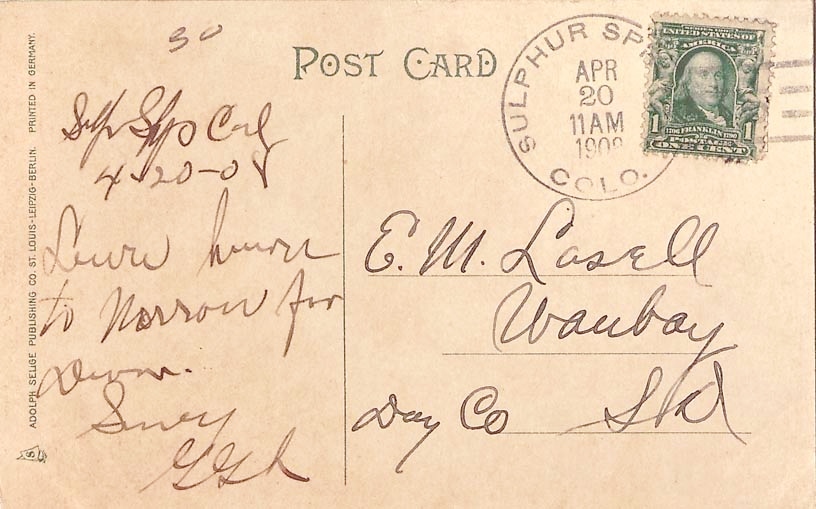 30
POST CARD
SULPHUR SP
APR
20
11 AM
1908
COLO.
SERIES 1902
UNITED STATES OF
AMERICA
1 1706 FRANKLIN 1790 1
POSTAGE
ONE CENT
ADOLPH SELIGE PUBLISHING CO. ST. LOUIS-LEIPZIG-BERLIN. PRINTED IN GERMANY.
Sul Spgs Col
4-20-08
Leave here
to Morrow for
E. M. Lasell
Waubay
Day Co S D